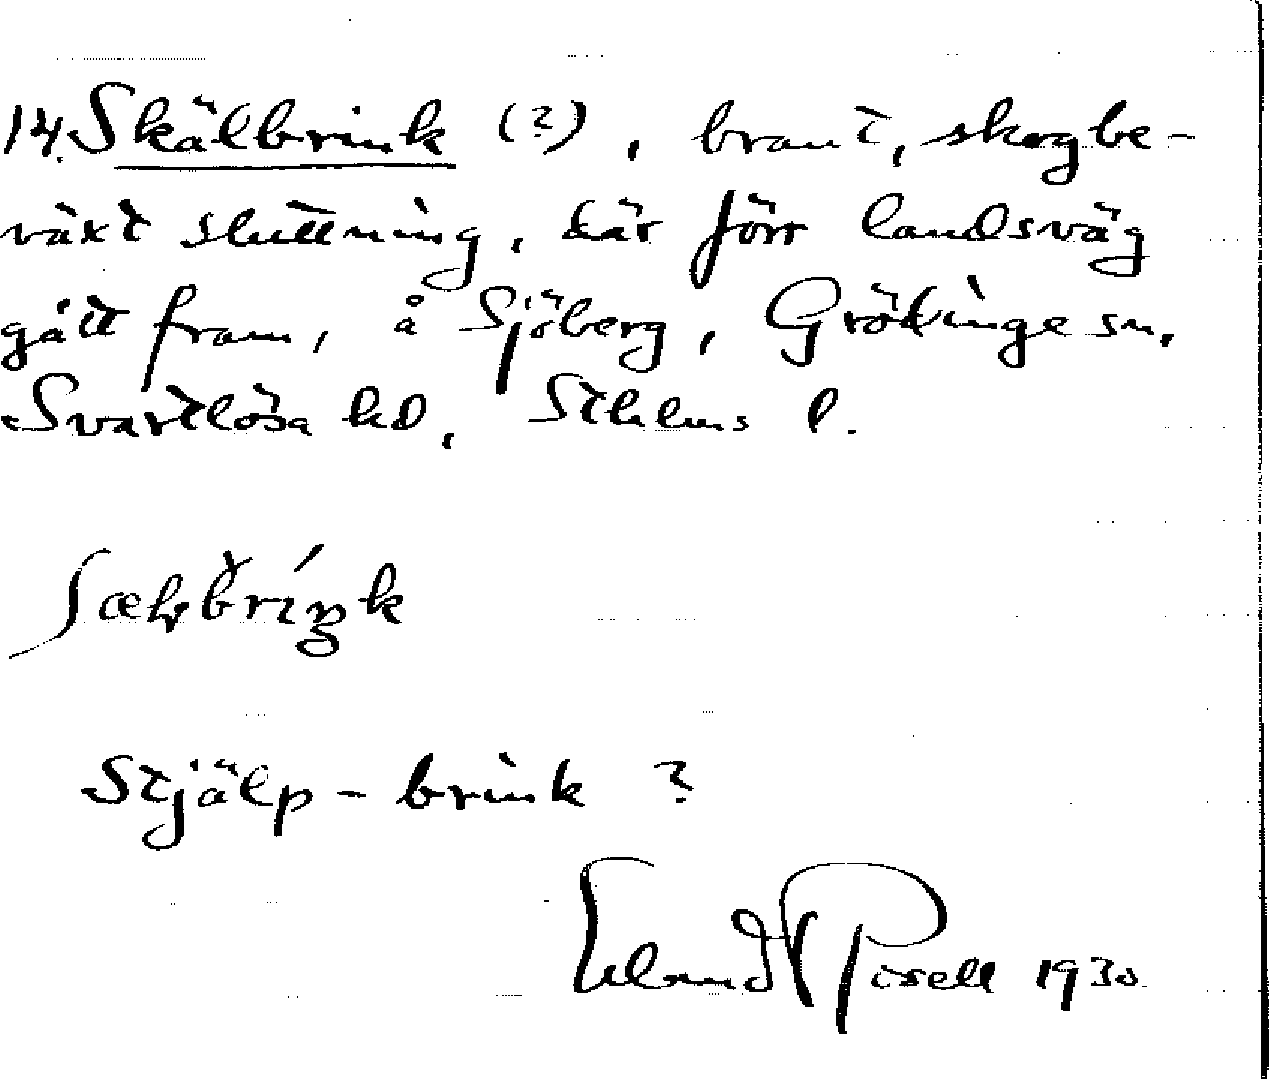 14. Skälbrink (?), brant, skogbe-
växt sluttning, där förr landsväg
gått fram, å Sjöberg, Grödinge sn,
Svartlösa hd, Sthlms l.
Stjälp-brink ?
Rosell 1930